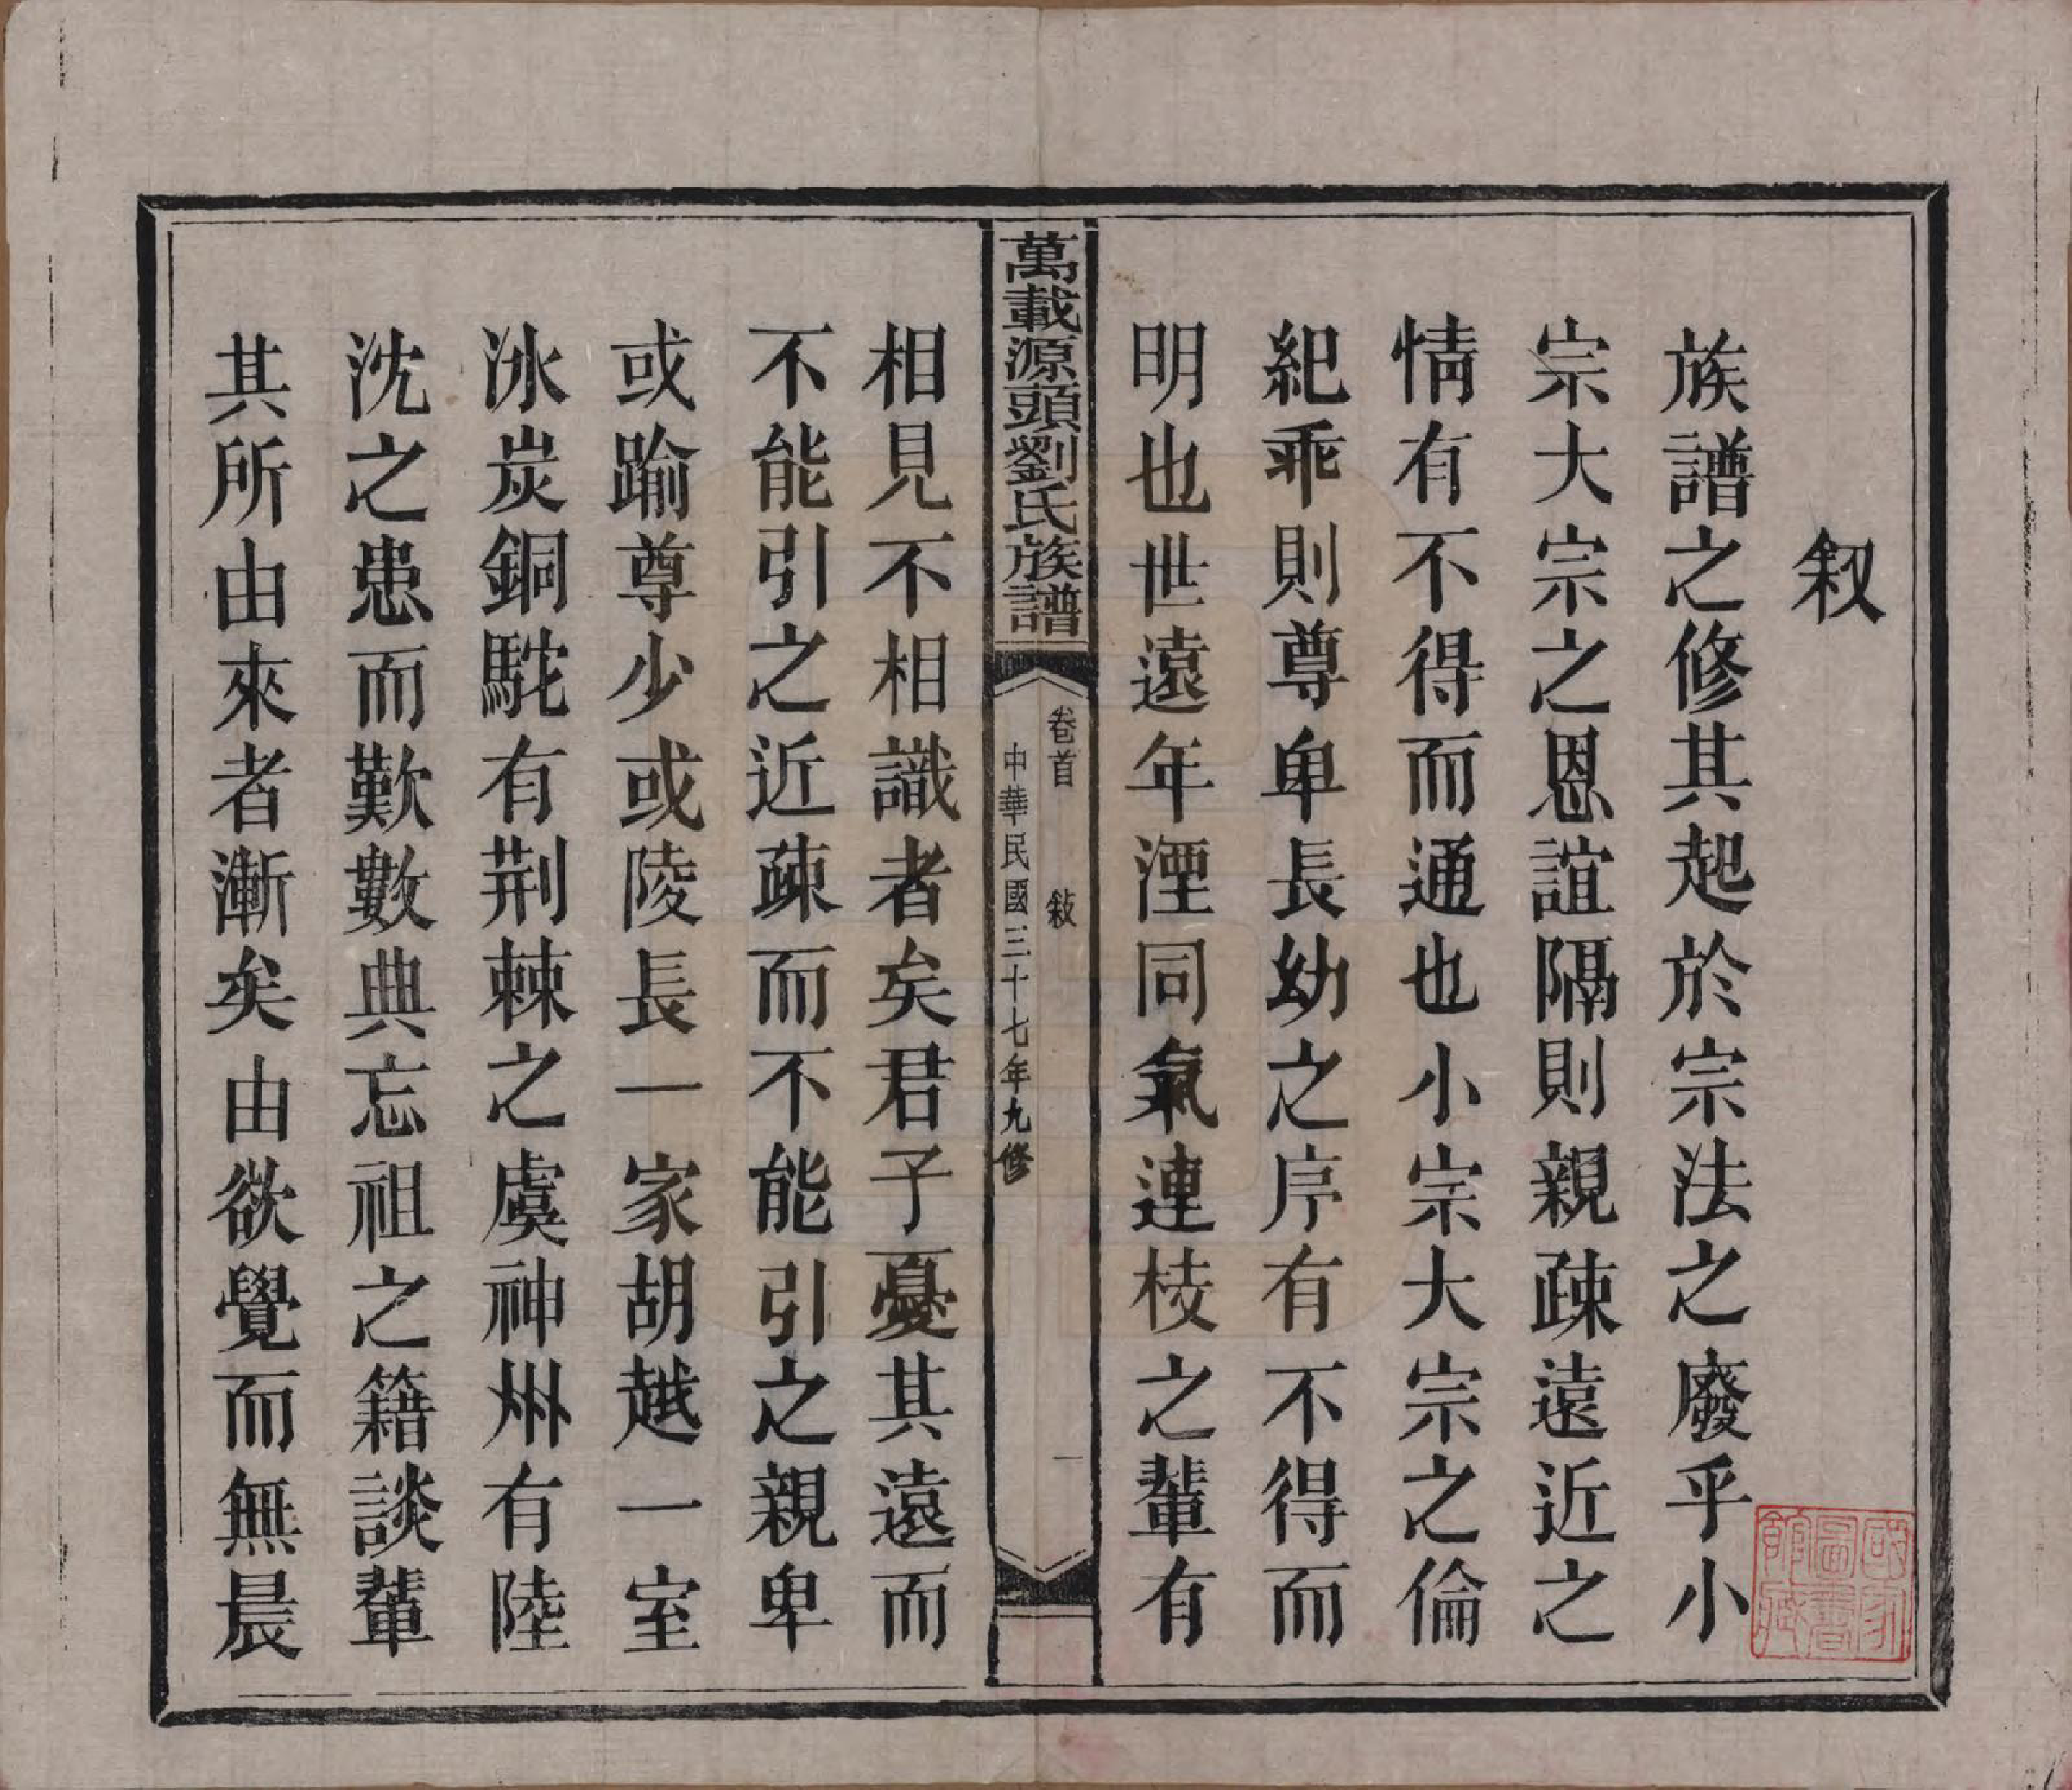 敘
族譜之修其起於宗法之廢乎小
宗大宗之恩誼隔則親疎遠近之
情有不得而通也小宗大宗之倫
紀乖則尊卑長幼之序有不得而
明也世遠年湮同氣連枝之輩有
萬載源頭劉氏族譜
卷首 敍 一
中華民國三十七年九修
相見不相識者矣君子憂其遠而
不能引之近疎而不能引之親卑
或踰尊少或陵長一家胡越一室
冰炭銅駝有荆棘之虞神州有陸
沈之患而歎數典忘祖之籍談輩
其所由來者漸矣由欲覺而無晨
國家圖書館藏